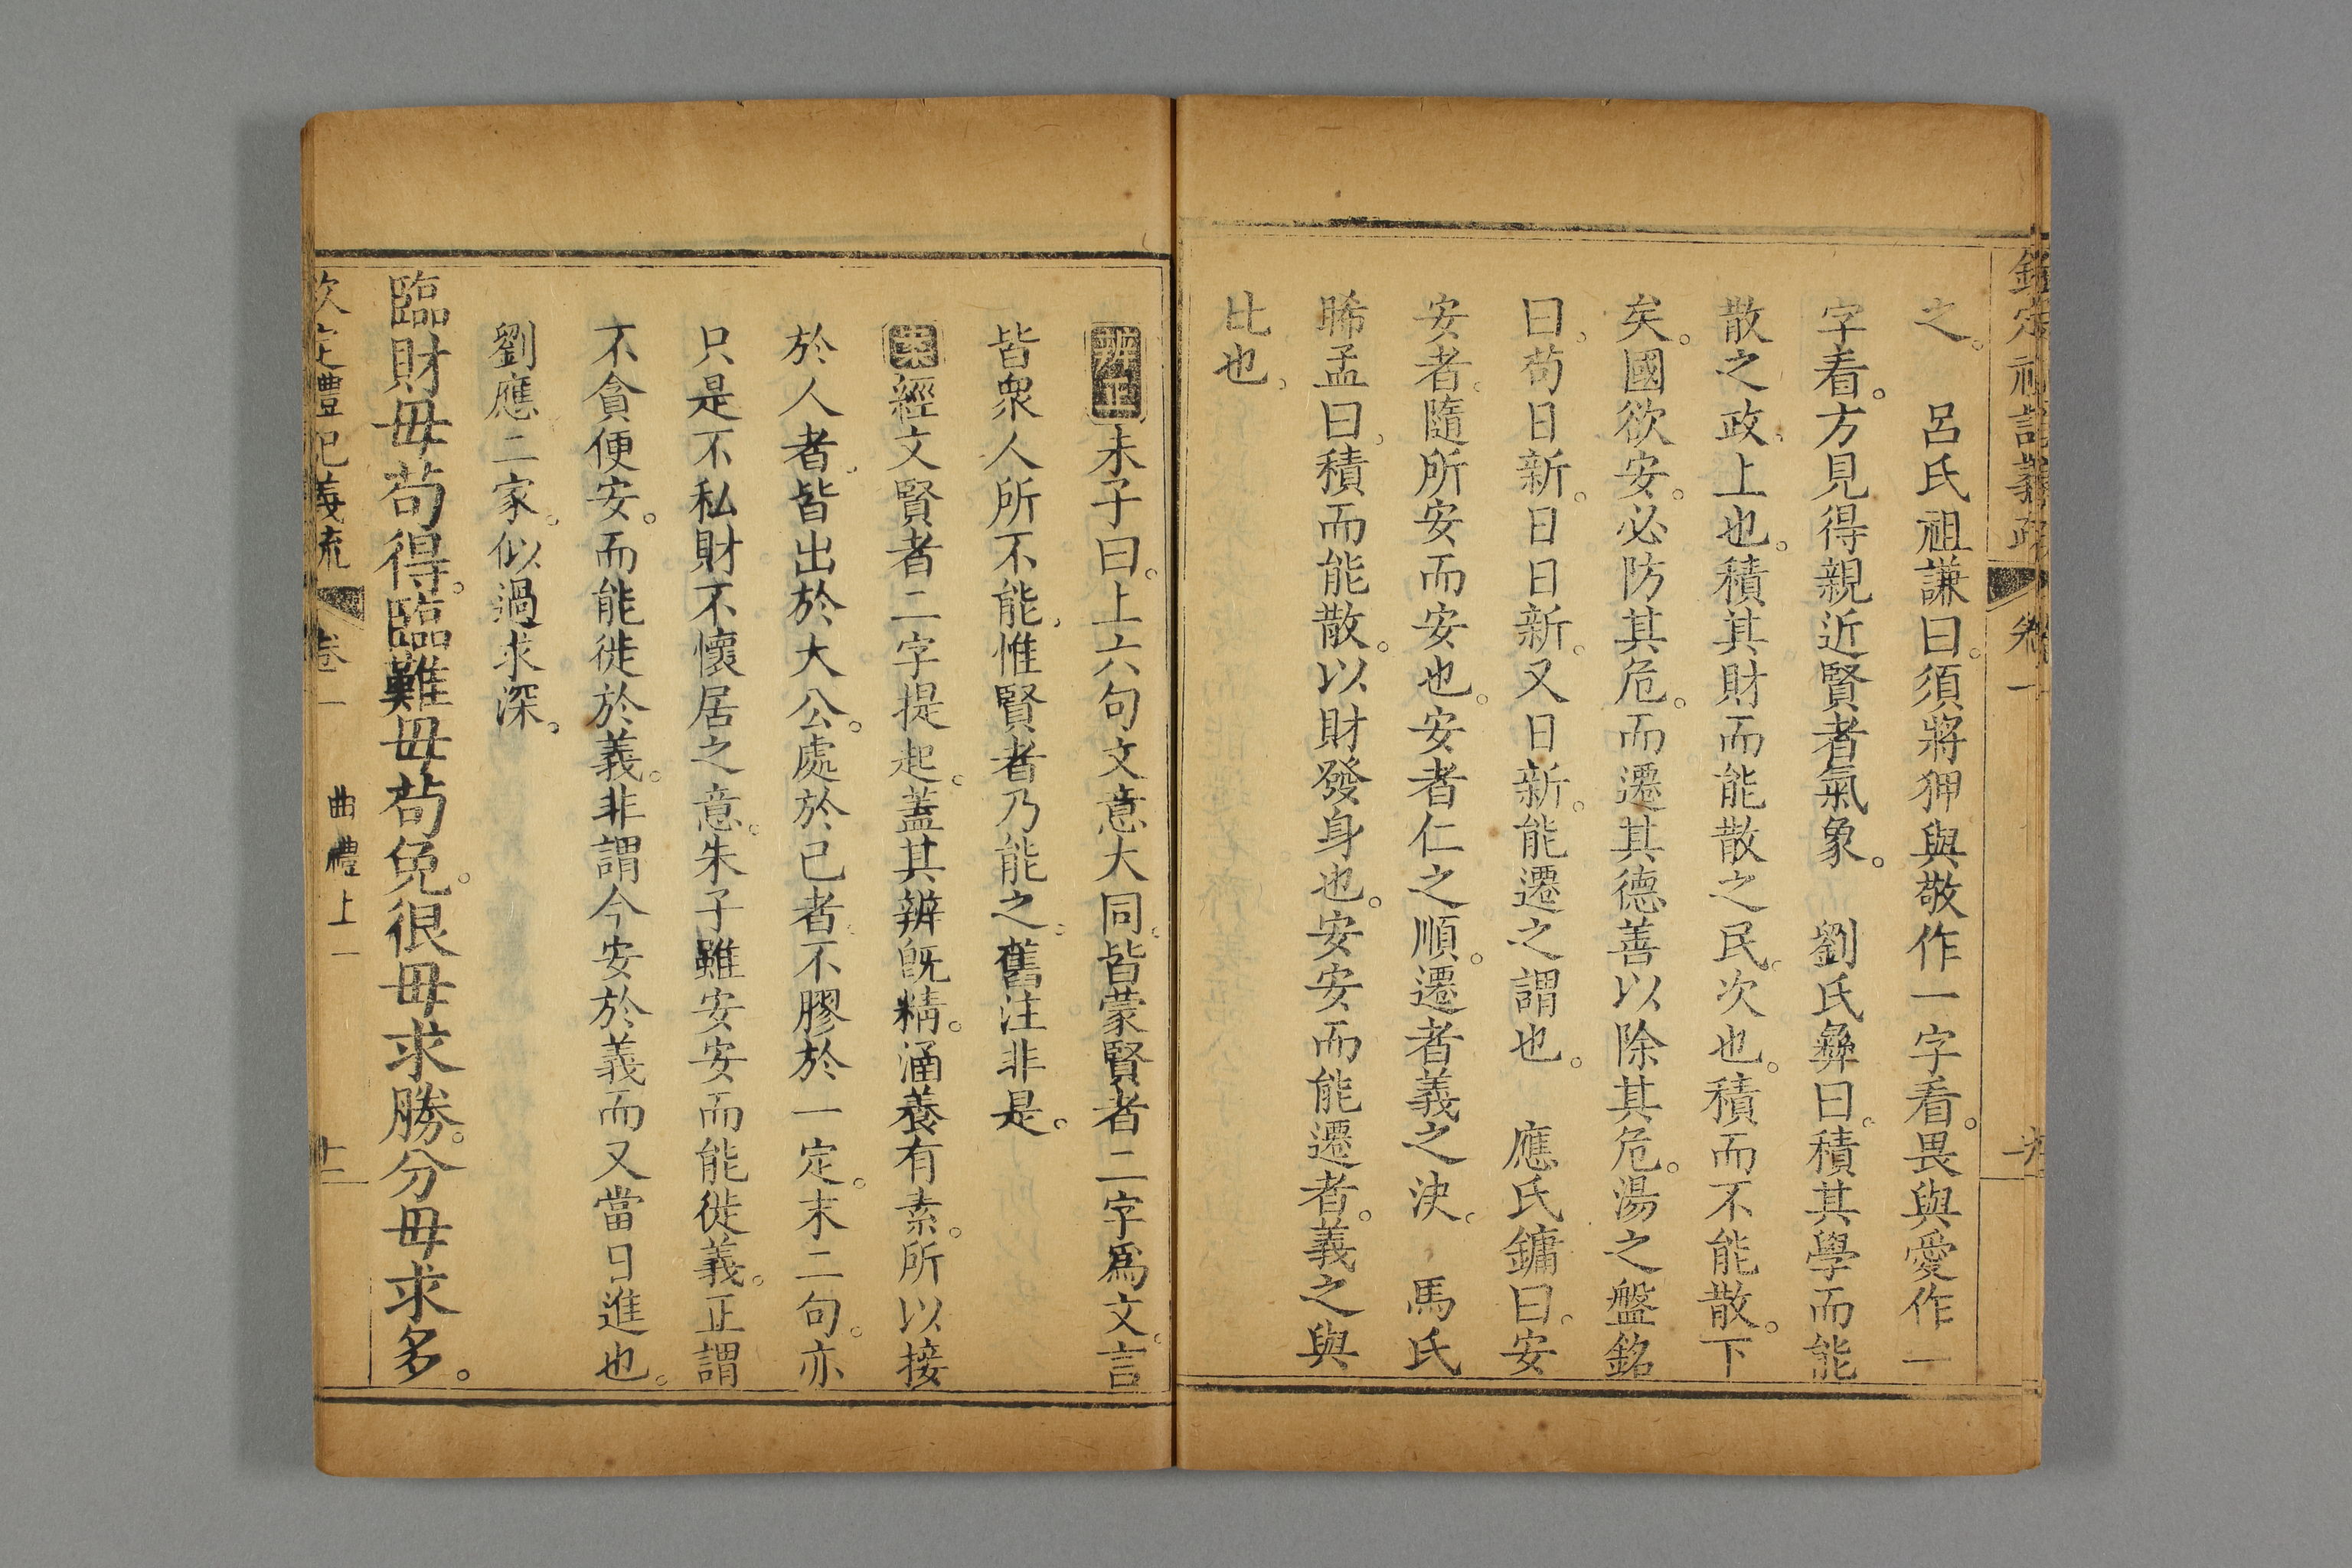 欽定禮記義疏 卷一
之。 呂氏祖謙曰。須將狎與敬作一字看。畏與愛作一
字看。方見得親近賢者氣象。 劉氏彝曰。積其學而能
散之政。上也。積其財而能散之民。次也。積而不能散。下
矣。國欲安。必防其危。而遷其德善以除其危。湯之盤銘
曰。苟日新。日日新。又日新。能遷之謂也。 應氏鏞曰。安
安者。隨所安而安也。安者仁之順。遷者義之決。 馬氏
晞孟曰。積而能散。以財發身也。安安而能遷者。義之與
比也。
辨正朱子曰。上六句文意大同。皆蒙賢者二字爲文。言
皆衆人所不能。惟賢者乃能之。舊注非是。
案經文賢者二字提起。蓋其辨旣精。涵養有素。所以接
於人者。皆出於大公。處於己者。不膠於一定。末二句。亦
只是不私財不懷居之意。朱子雖安安而能徙義。正謂
不貪便安。而能徙於義。非謂今安於義而又當日進也。
劉應二家。似過求深。
臨財毋苟得。臨難毋苟免。很毋求勝。分毋求多。
欽定禮記義疏 卷一 曲禮上一 十二